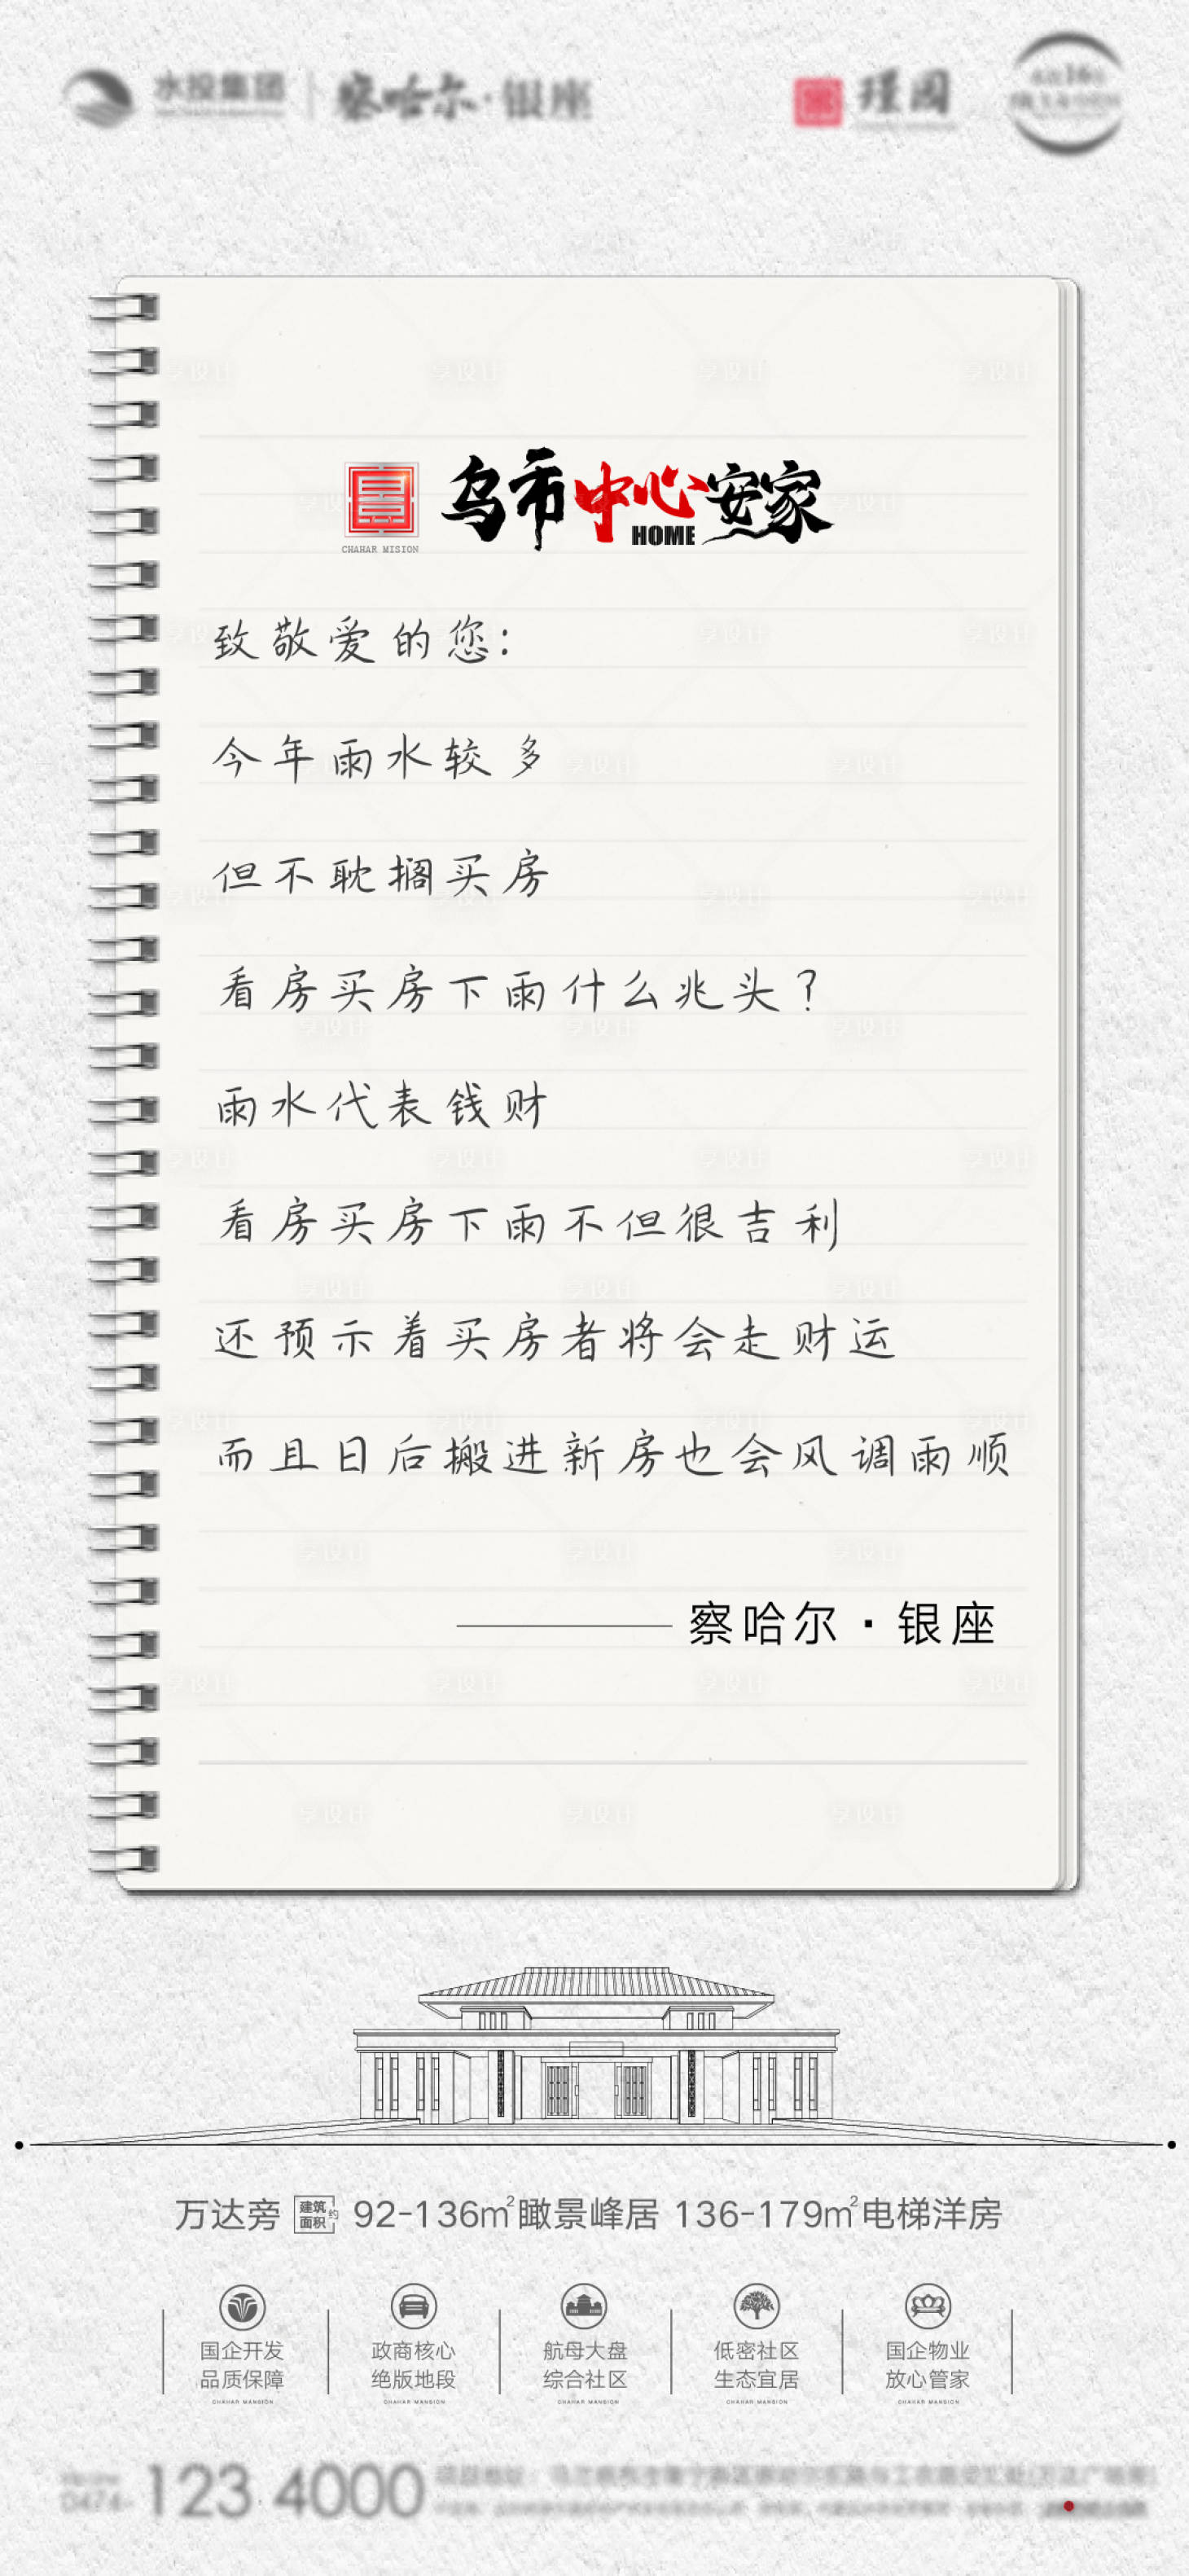 水投集团 察哈尔·银座 瑾园
乌市中心安家
HOME
CHAHAR MISION
致敬爱的您:
今年雨水较多
但不耽搁买房
看房买房下雨什么兆头?
雨水代表钱财
看房买房下雨不但很吉利
还预示着买房者将会走财运
而且日后搬进新房也会风调雨顺
察哈尔·银座
万达旁 建筑面积约 92-136㎡瞰景峰居 136-179㎡电梯洋房
国企开发 政商核心 航母大盘 低密社区 国企物业
品质保障 绝版地段 综合社区 生态宜居 放心管家
CHAHAR MANSION CHAHAR MANSION CHAHAR MANSION CHAHAR MANSION CHAHAR MANSION
0474- 123 4000